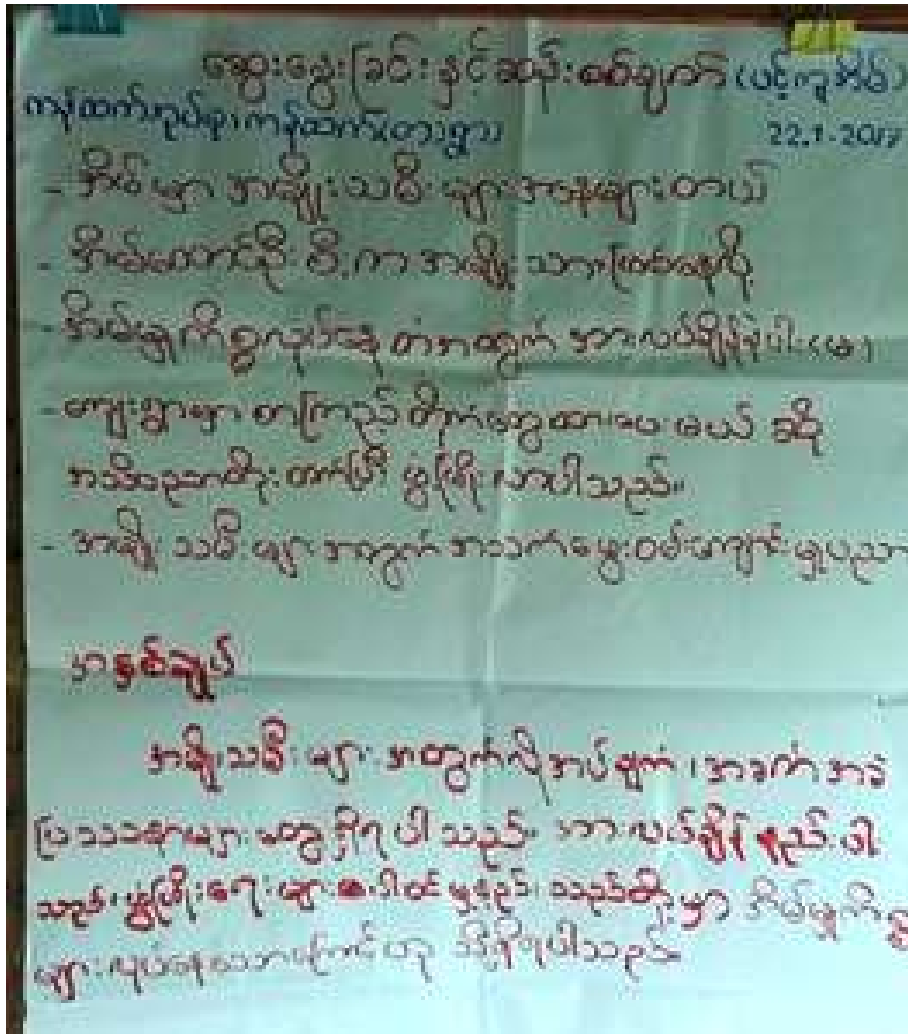 ဆွေးနွေးခြင်းနှင့်ဆန်းစစ်ချက် (ပင့်ကူအိမ်)
22.1.2017
- အိမ်မှာ အမျိုးသမီးများအားနည်းတယ်
- အိမ်ထောင်ဦးစီးက အမျိုးသားဖြစ်နေလို့
- အိမ်မှုကိစ္စလုပ်နေတဲ့အတွက် အားလပ်ချိန်နဲပါး (မ)
- ကျေးရွာမှာ တကြည် တိုက်တွေထားပေးမယ် ဆို
အသိပညာတိုးတက်ပြီး ဖွံ့ဖြိုးလာပါသည်။
- အမျိုးသမီးများအတွက် အသက်မွေးဝမ်းကျောင်းမှုပညာ
အနှစ်ချုပ်
အမျိုးသမီးများ အတွက်လိုအပ်ချက်၊ အခက်အခဲ
ပြဿနာများ တွေ့ရှိရပါသည်။ အားလပ်ချိန်နည်းပါး
သည်။ ဖွံ့ဖြိုးရေးများ ပါဝင်မှုနည်း သည်တို့မှာ အိမ်မှုကိစ္စ
များ လုပ်နေသောကြောင့်ဟု သိရှိရပါသည်။